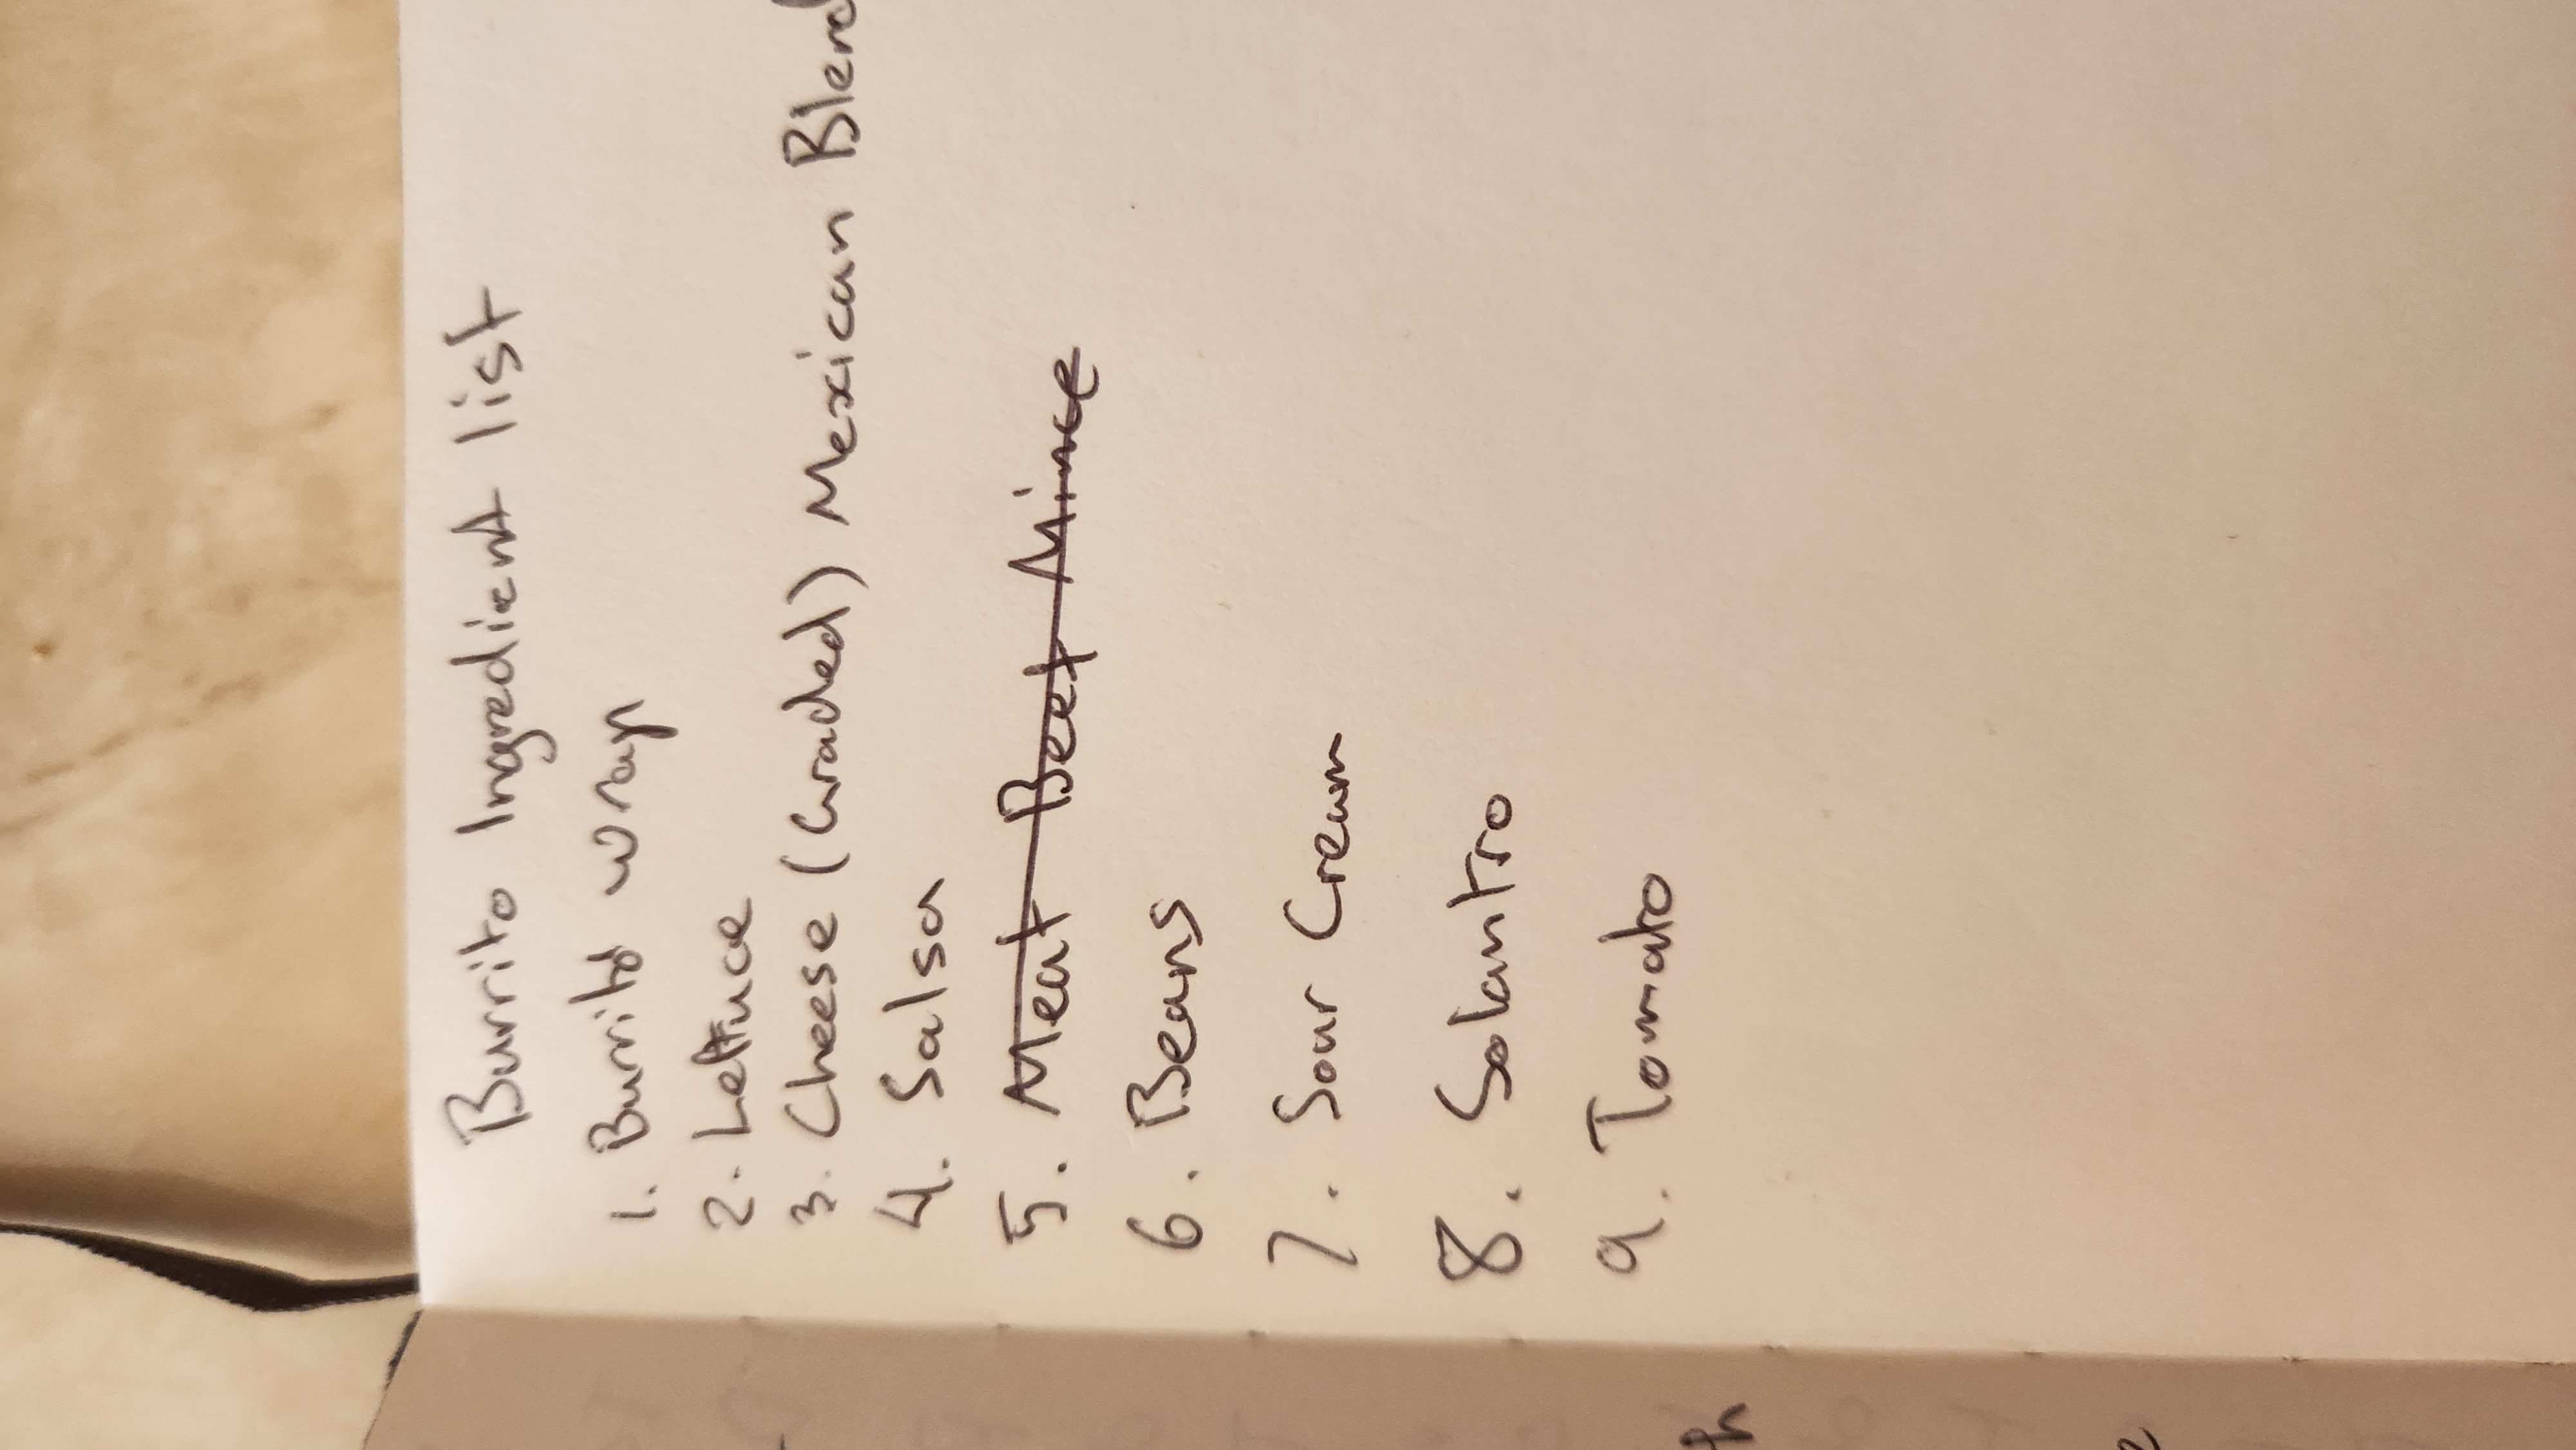 Burrito Ingredient list
1. Burrito wrap
2. Lettuce
3. Cheese (Graded) Mexican Blend
4. Salsa
5. Meat Beef Mince
6. Beans
7. Sour Cream
8. Solantro
9. Tomato